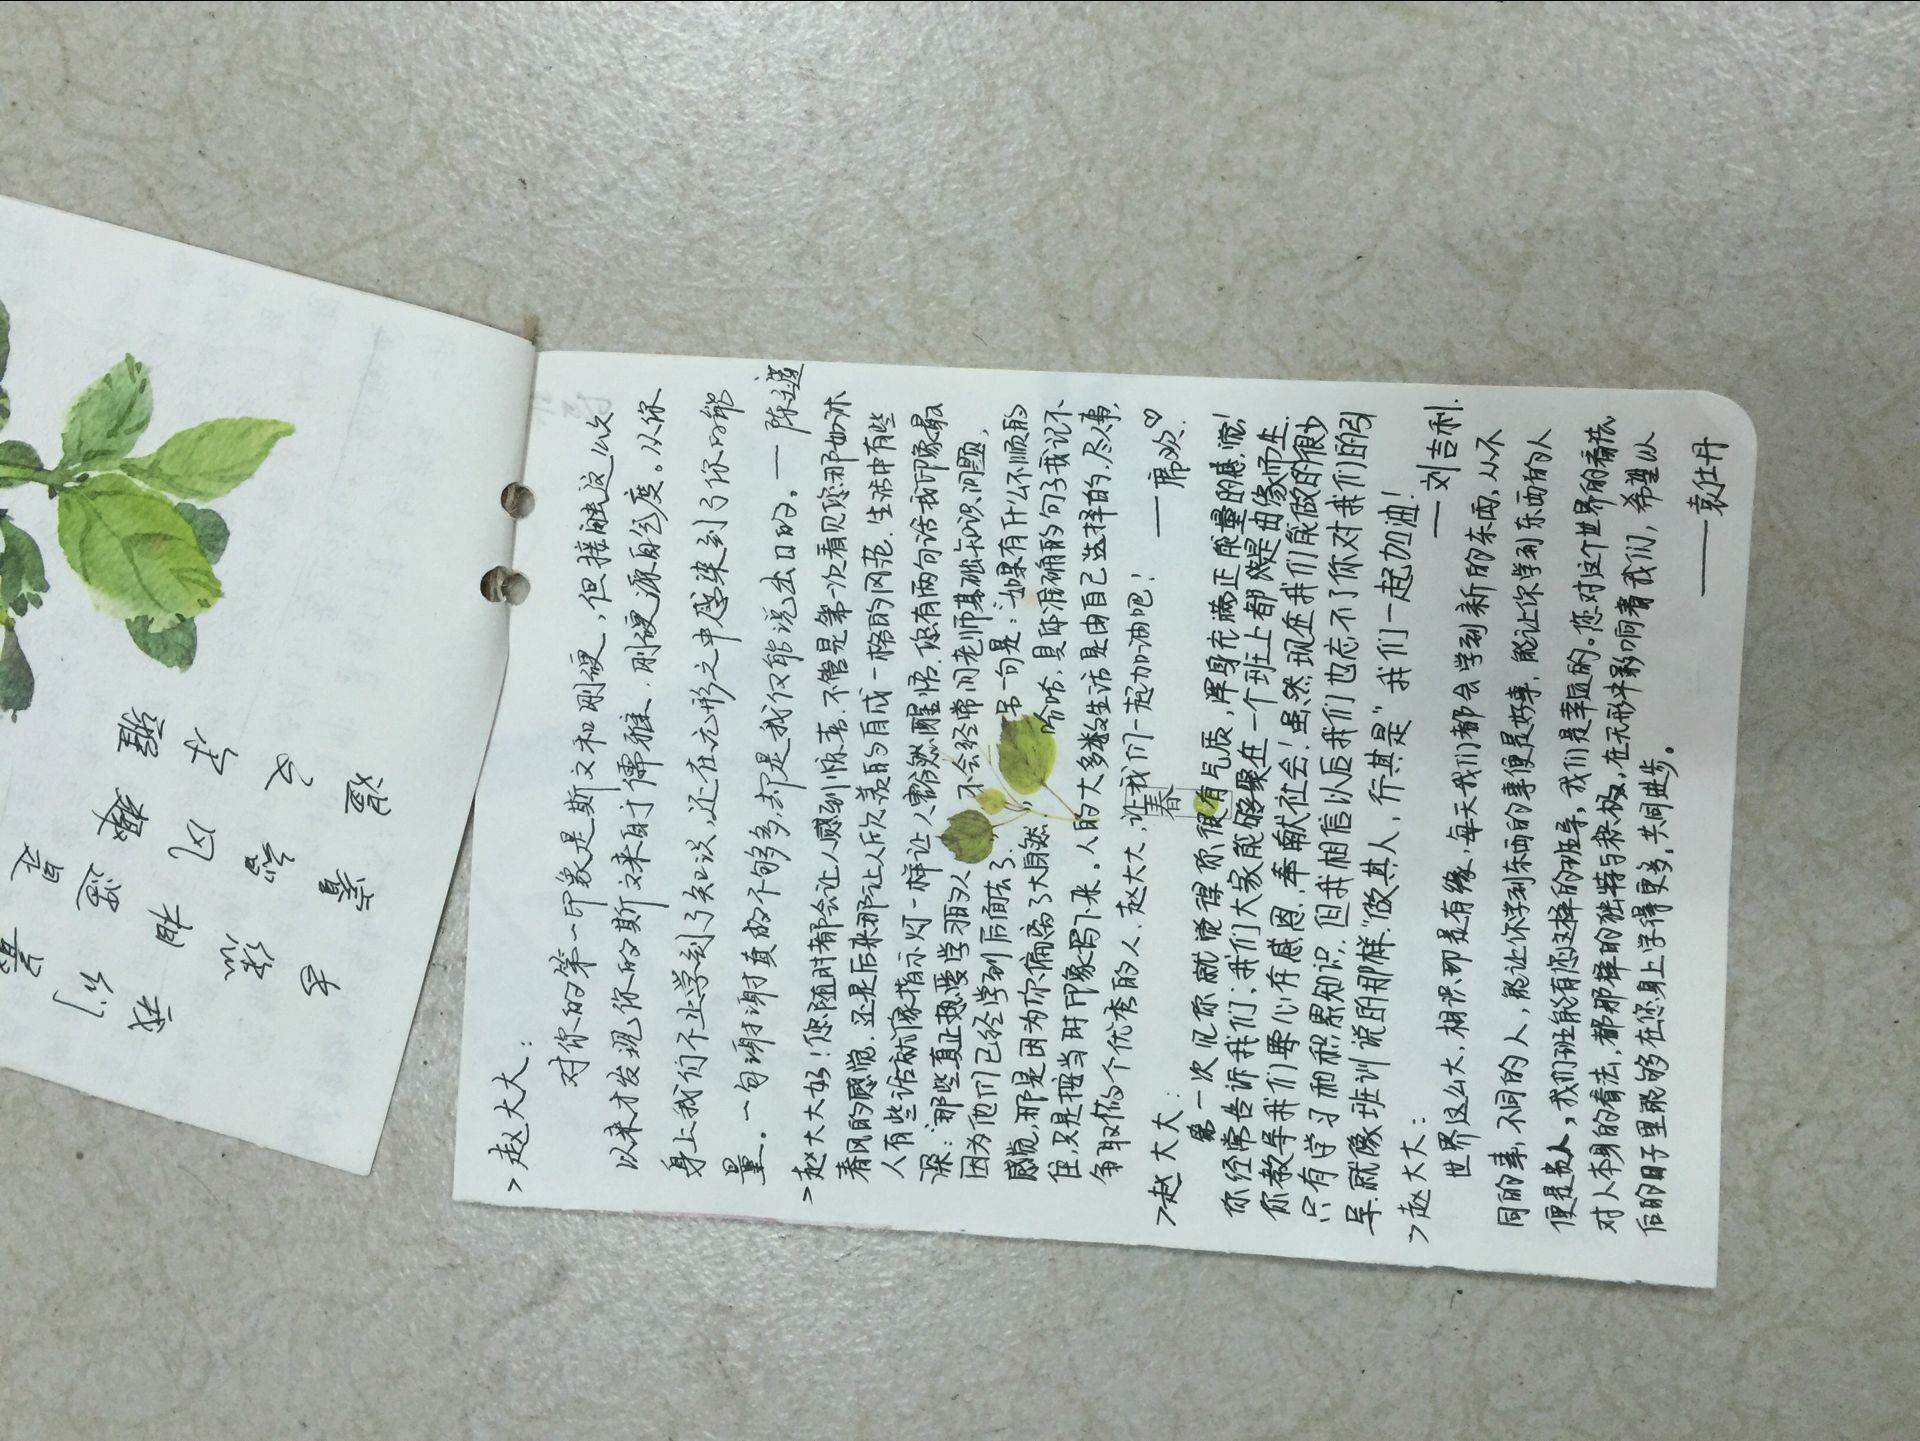 >赵大大：
对你的第一印象是斯文和刚硬，但接触这么久
以来才发现你的斯文来自于儒雅，刚硬源自气度。从你
身上我们不止学到了知识，还在无形之中感染到了你的能
量。一句谢谢真的不够多，却是我仅能说出口的。——陈遥
>赵大大好！您随时都会让人感到惊喜，不管是第一次看见您那如沐
春风的感觉，还是后来那让人欣羡的自成一格的风范，生活中有些
人有些话就像指示灯一样让人豁然醒悟，您有两句话我印象最
深："那些真正热爱学习的人不会经常问老师基础知识问题，
因为他们已经学到后面去了。"另一句是："如果有什么不顺的
感觉，那是因为你偏离了大自然。"哈哈，具体准确的句子我记不
住，只是把当时印象写下来，人的大多数生活是由自己选择的，尽人事，
争取做个优秀的人，赵大大，让我们一起加油吧！
——席欢♡
春
>赵大大：
第一次见你就觉得你很有气质，浑身充满正能量的感觉！
你经常告诉我们：我们大家能够聚在一个班上都是由缘而生，
你教导我们要心存感恩，奉献社会！虽然，现在我们能做的很少
只有学习和积累知识，但我相信以后我们也忘不了你对我们的引
导，就像班训说的那样："做其人，行其是"我们一起加油！
——刘吉利.
>赵大大：
世界这么大，相识即是有缘，每天我们都会学到新的东西，从不
同的事，不同的人，能让你学到东西的事便是好事，能让你学到东西的人
便是贵人，我们班能有您这样的班导，我们是幸运的。您对这个世界的看法，
对人本身的看法，都那样的独特与积极，在无形中影响着我们，希望以
后的日子里能够在您身上学得更多，共同进步。
——袁仕丹